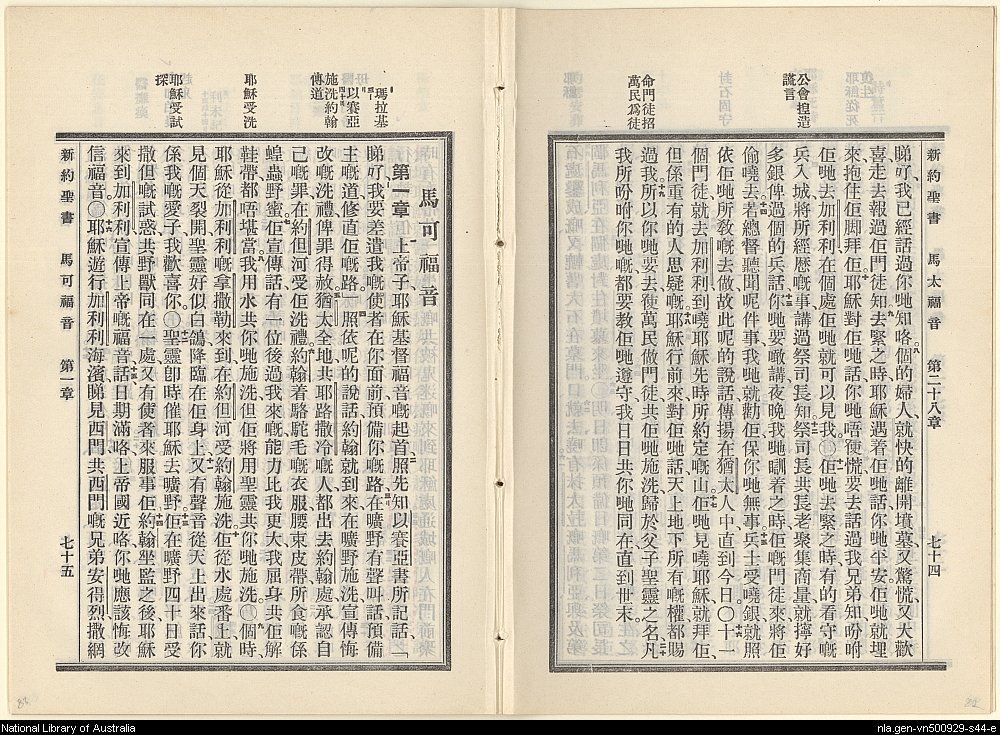 新約聖書 馬太福音 第二十八章 七十四
公會捏造
謊言
命門徒招
萬民爲徒
睇好、我已經話過你哋知咯。個的婦人、就快的離開墳墓、又驚慌又大歡
喜、走去報過佢門徒知、去緊之時、耶穌遇着佢哋、話、你哋平安、佢哋就埋
來抱住佢脚拜佢。耶穌對佢哋話、你哋唔使慌、要去話過我兄弟知、吩咐
佢哋去加利利、在個處佢哋就可以見我。○佢哋去緊之時、有的看守嘅
兵入城、將所經歷嘅事、講過祭司長知。祭司長共長老聚集商量、就擰好
多銀俾過個的兵、話、你哋要噉講、夜晚我哋瞓着之時、佢嘅門徒來將佢
偷嘵去。若總督聽聞呢件事、我哋就勸佢、保你哋無事。兵士受嘵銀、就照
依佢哋所敎嘅去做、故此呢的說話傳揚在猶太人中、直到今日。○十一
個門徒就去加利利、到嘵耶穌先時所約定嘅山。佢哋見嘵耶穌就拜佢、
但係重有的人思疑嘅。耶穌行前來對佢哋話、天上地下所有嘅權都賜
過我。所以你哋要去、使萬民做門徒、共佢哋施洗、歸於父子聖靈之名。凡
我所吩咐你哋嘅、都要教佢哋遵守、我日日共你哋同在、直到世末。
瑪拉基
以賽亞
施洗約翰
傳道
耶穌受洗
耶穌受試
探
馬可福音
第一章 上帝子耶穌基督福音嘅起首。照先知以賽亞書所記話、
睇好、我要差遣我嘅使者、在你面前、預備你嘅路。在曠野有聲叫話、預備
主嘅道、修直佢嘅路。照依呢的說話、約翰就到來、在曠野施洗、宣傳悔
改嘅洗禮、俾罪得赦。猶太全地、共耶路撒冷嘅人、都出去約翰處、承認自
己嘅罪、在約但河受佢洗禮。約翰着駱駝毛嘅衣服、腰束皮帶、所食嘅係
蝗蟲野蜜。佢宣傳話、有一位後過我來嘅、能力比我更大、我屈身共佢解
鞋帶、都唔堪當。我用水共你哋施洗、但佢將用聖靈共你哋施洗。○個時、
耶穌從加利利嘅拿撒勒來到、在約但河受約翰施洗。佢從水處番上、就
見個天裂開、聖靈好似白鴿降臨在佢身上。又有聲音從天上出來話、你
係我嘅愛子、我歡喜你。○聖靈卽時催耶穌去曠野。佢在曠野四十日受
撒但嘅試惑、共野獸同在一處、又有使者來服事佢。約翰坐監之後、耶穌
來到加利利、宣傳上帝嘅福音、話、日期滿咯、上帝國近咯、你哋應該悔改
信福音。○耶穌遊行加利利海濱、睇見西門、共西門嘅兄弟安得烈、撒網
新約聖書 馬可福音 第一章 七十五
National Library of Australia
nla.gen-vn500929-s44-e